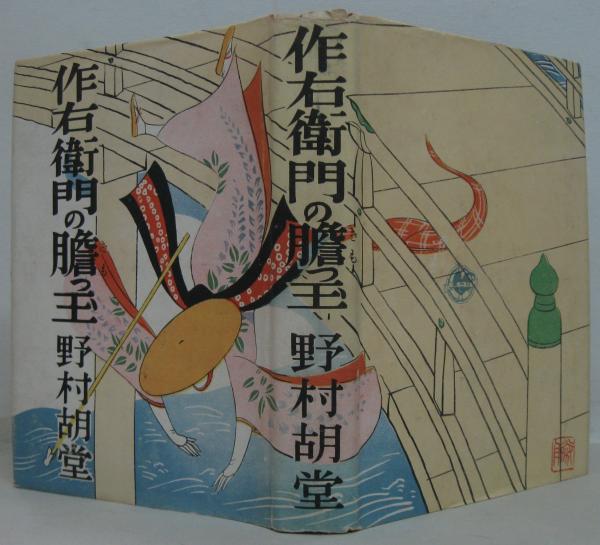 作右衛門の膽っ玉 野村胡堂
きも
作右衛門の膽っ玉 野村胡堂
きも